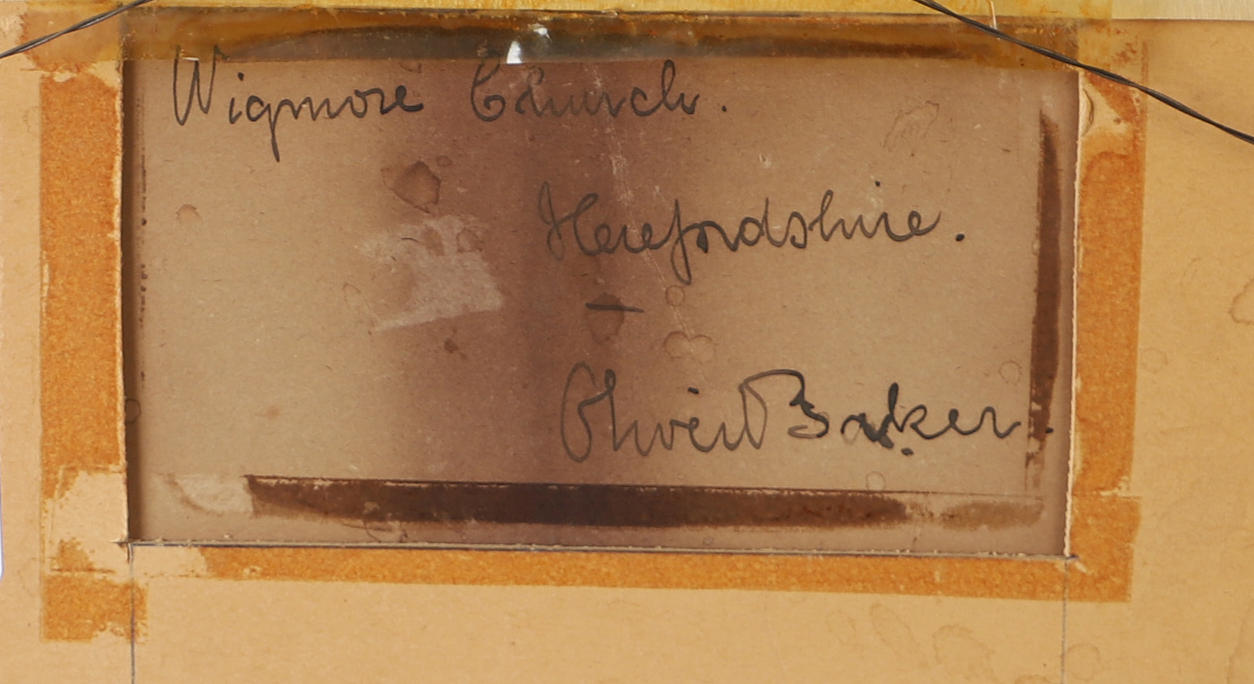 Wigmore Church.
Herefordshire.
—
Oliver Baker.